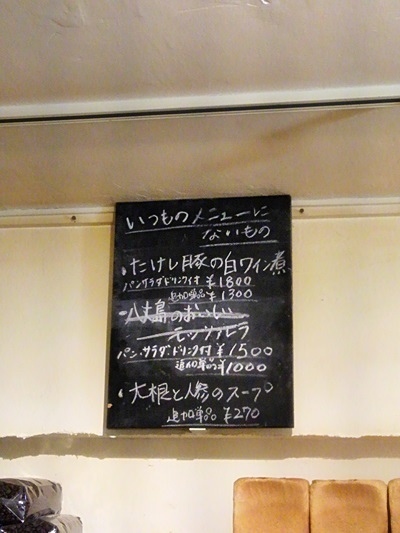 いつものメニューに
ないもの
・たけし豚の白ワイン煮
パンサラダドリンク付 ¥1800
追加単品 ¥1300
・八丈島のおいしい
モッツァレラ
パン・サラダ・ドリンク付 ¥1500
追加単品 ¥1000
・大根と人参のスープ
追加単品 ¥270